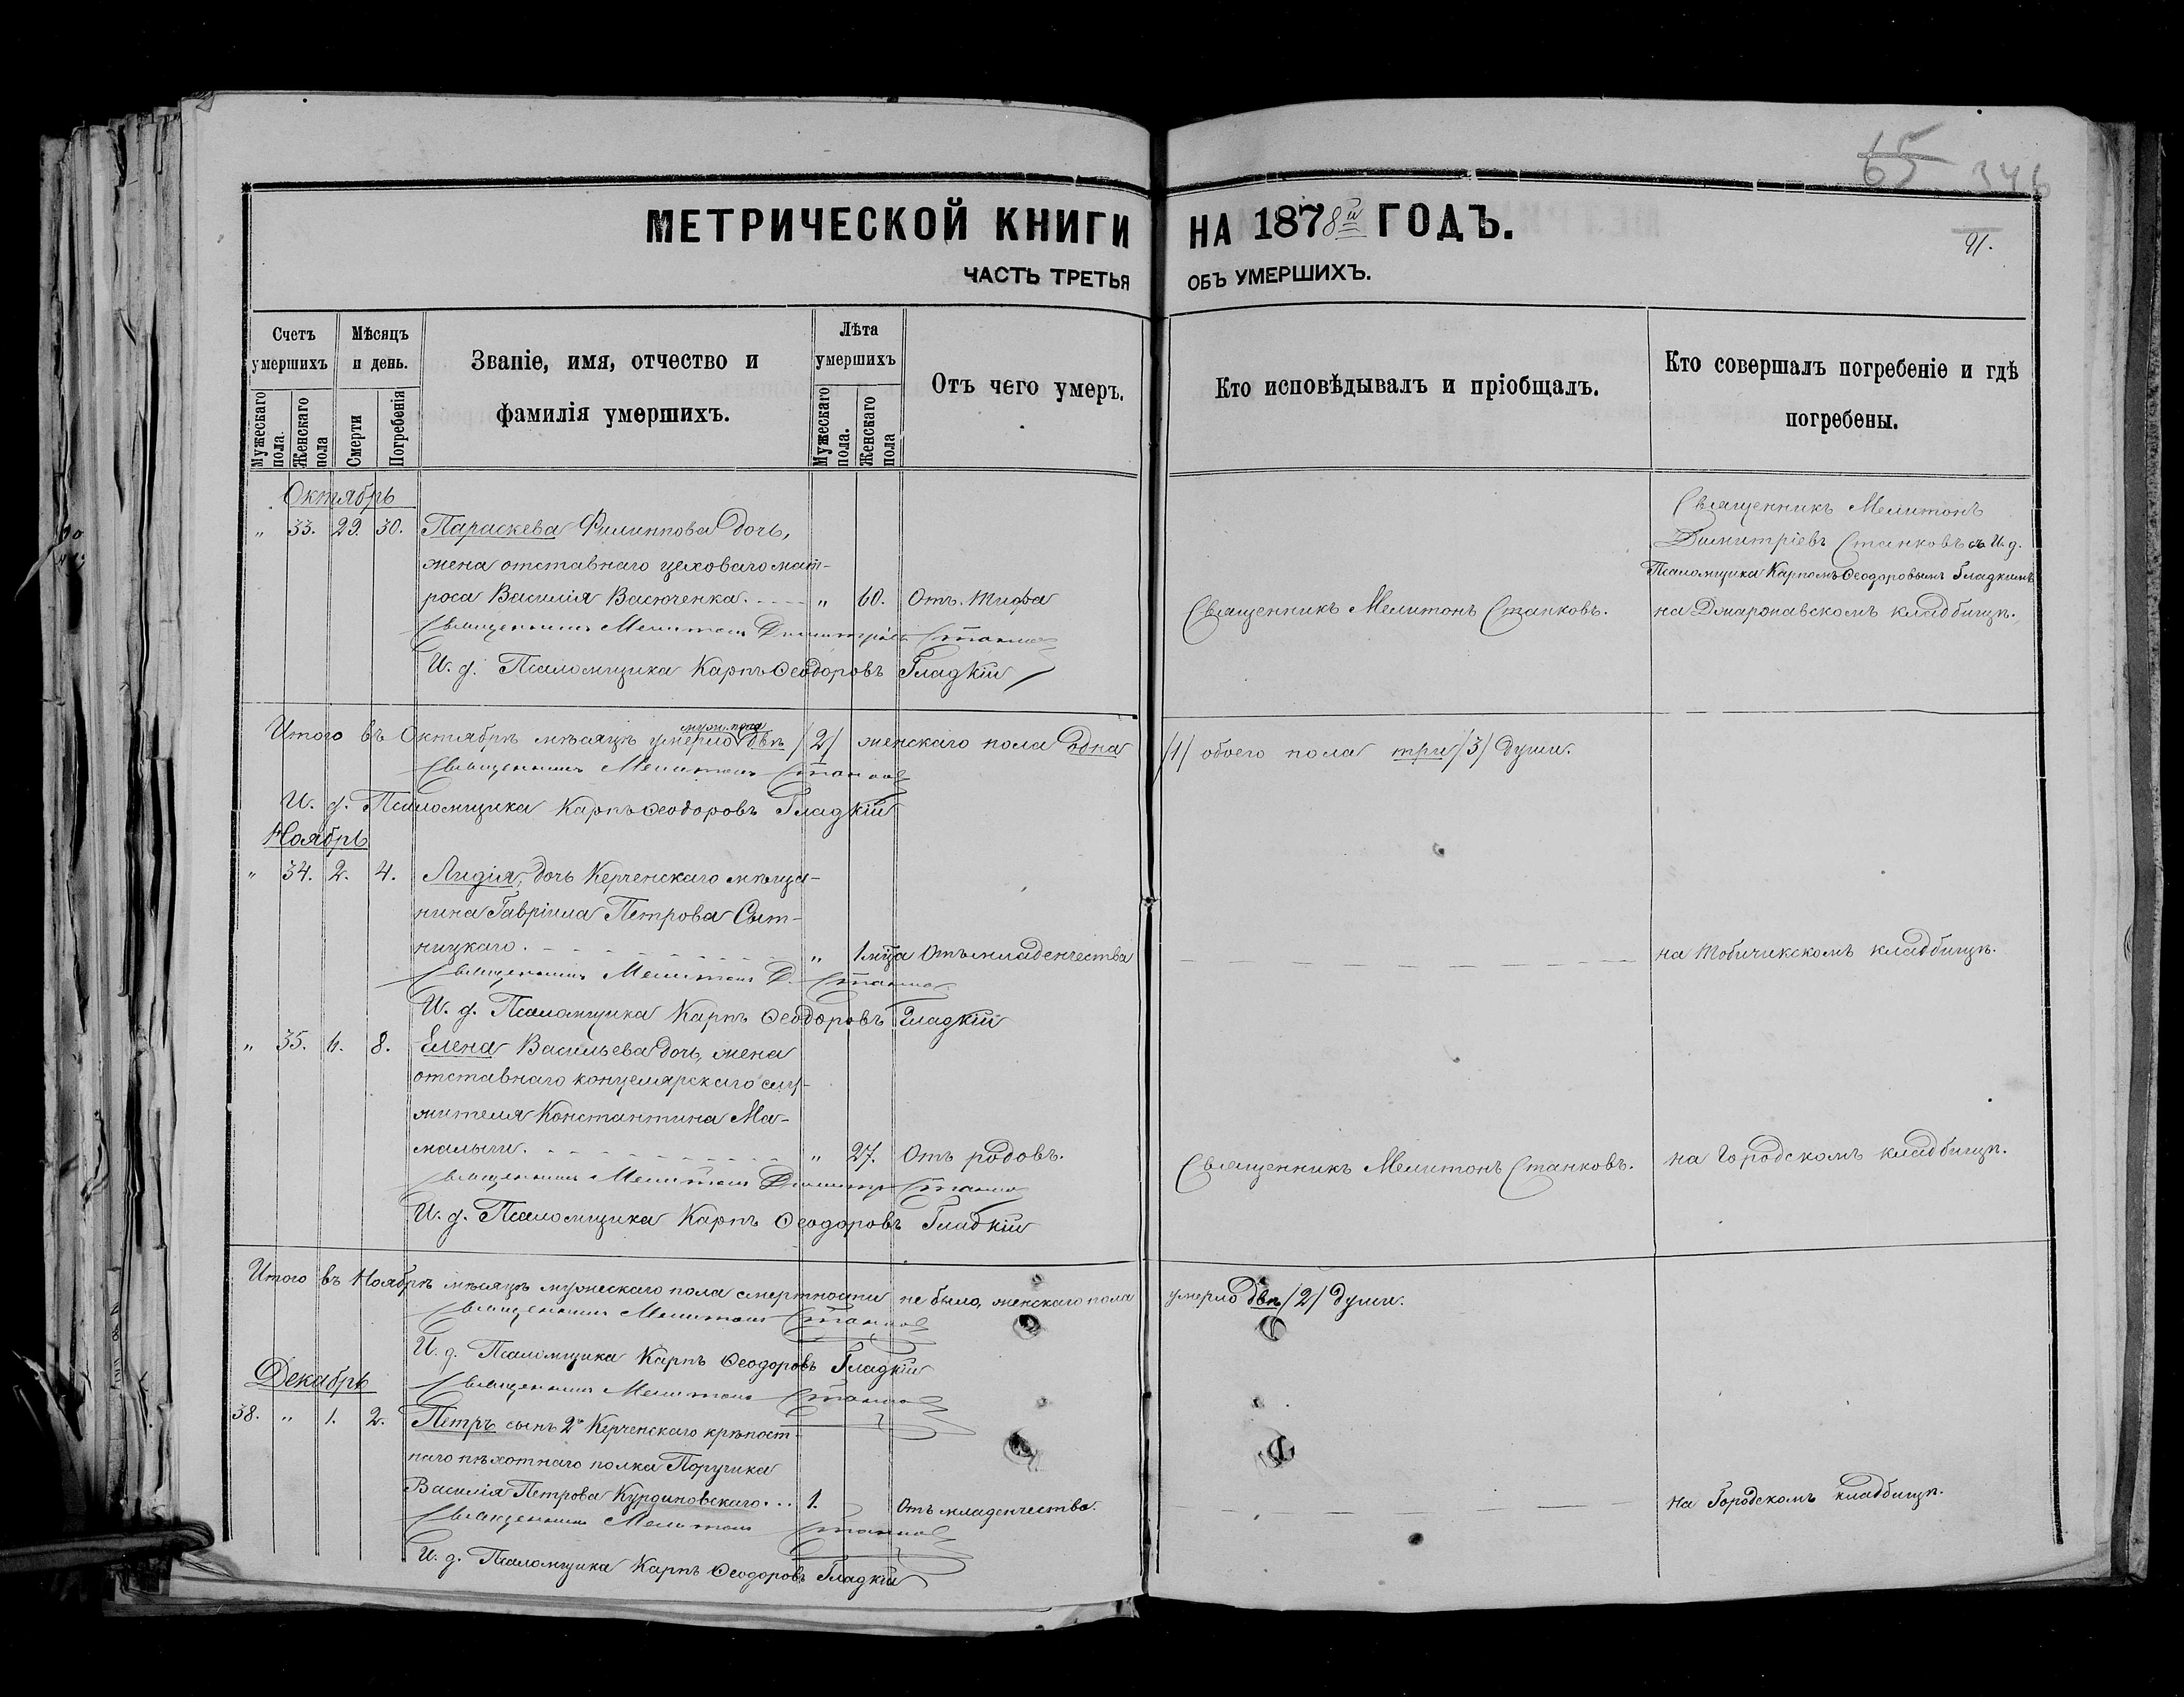 65 346
МЕТРИЧЕСКОЙ КНИГИ НА 1878й ГОДЪ.
91.
ЧАСТЬ ТРЕТЬЯ ОБЪ УМЕРШИХЪ.
Счетъ умершихъ
Мужескаго пола.
Женскаго пола
Мѣсяцъ и день.
Смерти
Погребенія
Званіе, имя, отчество и фамилія умершихъ.
Лѣта умершихъ
Мужескаго пола.
Женскаго пола
Отъ чего умеръ.
Кто исповѣдывалъ и пріобщалъ.
Кто совершалъ погребеніе и гдѣ погребены.
Октябрь
" 33. 29. 30. Параскева Филиппова дочь,
жена отставнаго цеховаго мат-
роса Василія Васюченка. " 60. Отъ тифа
Священникъ Мелитонъ Станковъ.
Священникъ Мелитонъ
Димитріевъ Станковъ съ И. д.
Псаломщика Карпомъ Ѳеодоровымъ Гладкимъ
на Джаропавскомъ кладбищѣ.
Священникъ Мелитонъ Димитріевъ Станковъ
И. д. Псаломщика Карпъ Ѳеодоровъ Гладкій
Итого въ Октябрѣ мѣсяцѣ умерло муж. пола двѣ /2/ женскаго пола одна /1/ обоего пола три /3/ души.
Священникъ Мелитонъ Станковъ
И. д. Псаломщика Карпъ Ѳеодоровъ Гладкій
Ноябрь
" 34. 2. 4. Лидія, дочь Керченскаго мѣща-
нина Гавріила Петрова Сыт-
ницкаго. " 1 м-ца Отъ младенчества на Тобичикскомъ кладбищѣ.
Священникъ Мелитонъ Д. Станковъ
И. д. Псаломщика Карпъ Ѳеодоровъ Гладкій
" 35. 6. 8. Елена Васильева дочь, жена
отставнаго канцелярскаго слу-
жителя Константина Ма-
малыги. " 27. Отъ родовъ. Священникъ Мелитонъ Станковъ. на Городскомъ кладбищѣ.
Священникъ Мелитонъ Димитр Станковъ
И. д. Псаломщика Карпъ Ѳеодоровъ Гладкій
Итого въ Ноябрѣ мѣсяцѣ мужескаго пола смертности не было, женскаго пола умерло двѣ /2/ души.
Священникъ Мелитонъ Станковъ
И. д. Псаломщика Карпъ Ѳеодоровъ Гладкій
Священникъ Мелитонъ Станковъ
Декабрь
38. " 1. 2. Петръ сынъ 2го Керченскаго крѣпост-
наго пѣхотнаго полка Поручика
Василія Петрова Курдиновскаго... 1. Отъ младенчества. на Городскомъ кладбищѣ.
Священникъ Мелитонъ Станковъ
И. д. Псаломщика Карпъ Ѳеодоровъ Гладкій